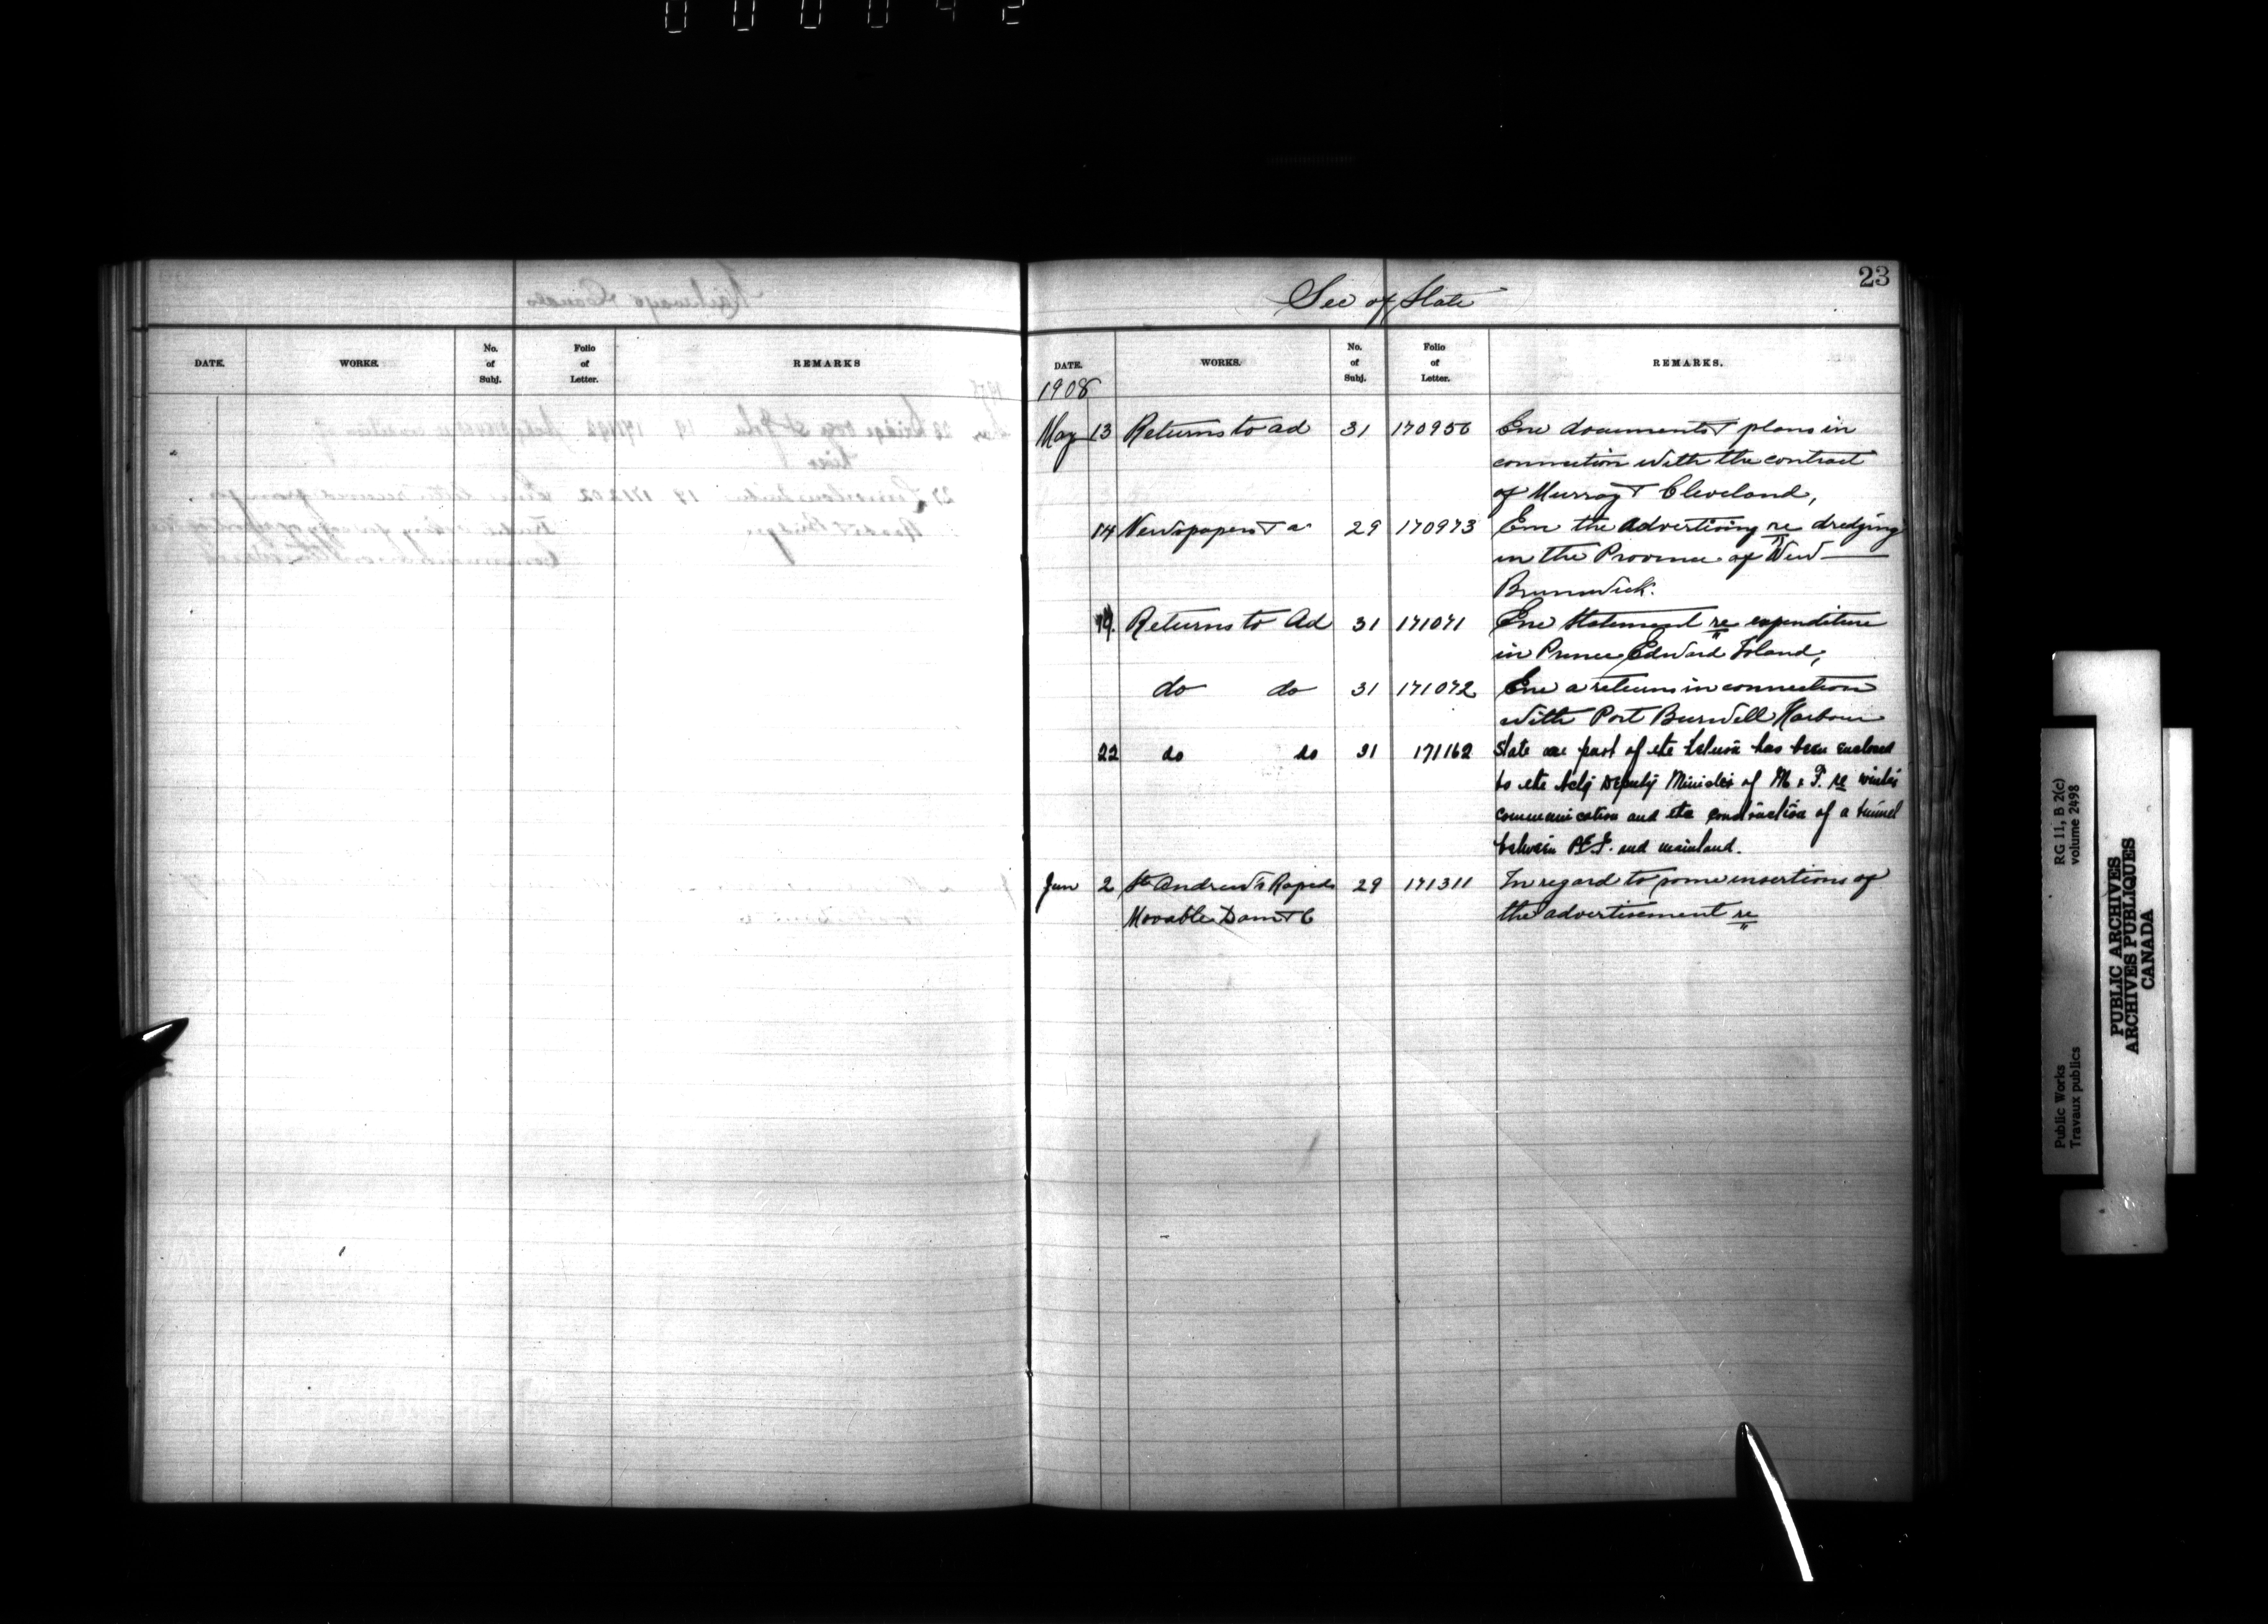 000042
23
Sec of State
DATE. WORKS. No. of Subj. Folio of Letter. REMARKS
DATE. WORKS. No. of Subj. Folio of Letter. REMARKS.
1908
May 13 Returns to ad 31 170956 Enc documents & plans in
connection with the contract
of Murray & Cleveland,
14 Newspapers & a 29 170973 Enc the advertising re dredging
in the Province of New
Brunswick.
19. Returns to Ad 31 171071 Enc Statement re expenditure
in Prince Edward Island,
do do 31 171072 Enc a returns in connection
with Port Burwell Harbour
22 do do 31 171162 State one part of the return has been enclosed
to the actg Deputy Minister of M & F. re winter
communication and the construction of a tunnel
between P.E.I. and mainland.
Jun 2 St Andrew's Rapids 29 171311 In regard to some insertions of
Movable Dam & C the advertisement re
Public Works RG 11, B 2(c)
Travaux publics volume 2498
PUBLIC ARCHIVES
ARCHIVES PUBLIQUES
CANADA